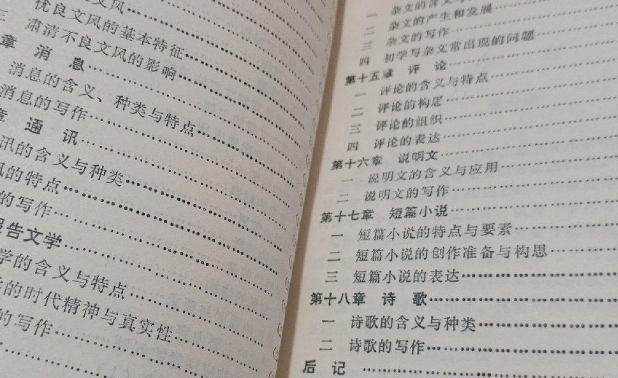 文风
优良文风的基本特征
肃清不良文风的影响
章 消 息
消息的含义、种类与特点
消息的写作
章 通 讯
讯的含义与种类
的特点
的写作
报告文学
学的含义与特点
的时代精神与真实性
的写作
二 杂文的产生和发展
三 杂文的写作
四 初学写杂文常出现的问题
第十五章 评 论
一 评论的含义与特点
二 评论的构思
三 评论的组织
四 评论的表达
第十六章 说明文
一 说明文的含义与应用
二 说明文的写作
第十七章 短篇小说
一 短篇小说的特点与要素
二 短篇小说的创作准备与构思
三 短篇小说的表达
第十八章 诗 歌
一 诗歌的含义与种类
二 诗歌的写作
后 记